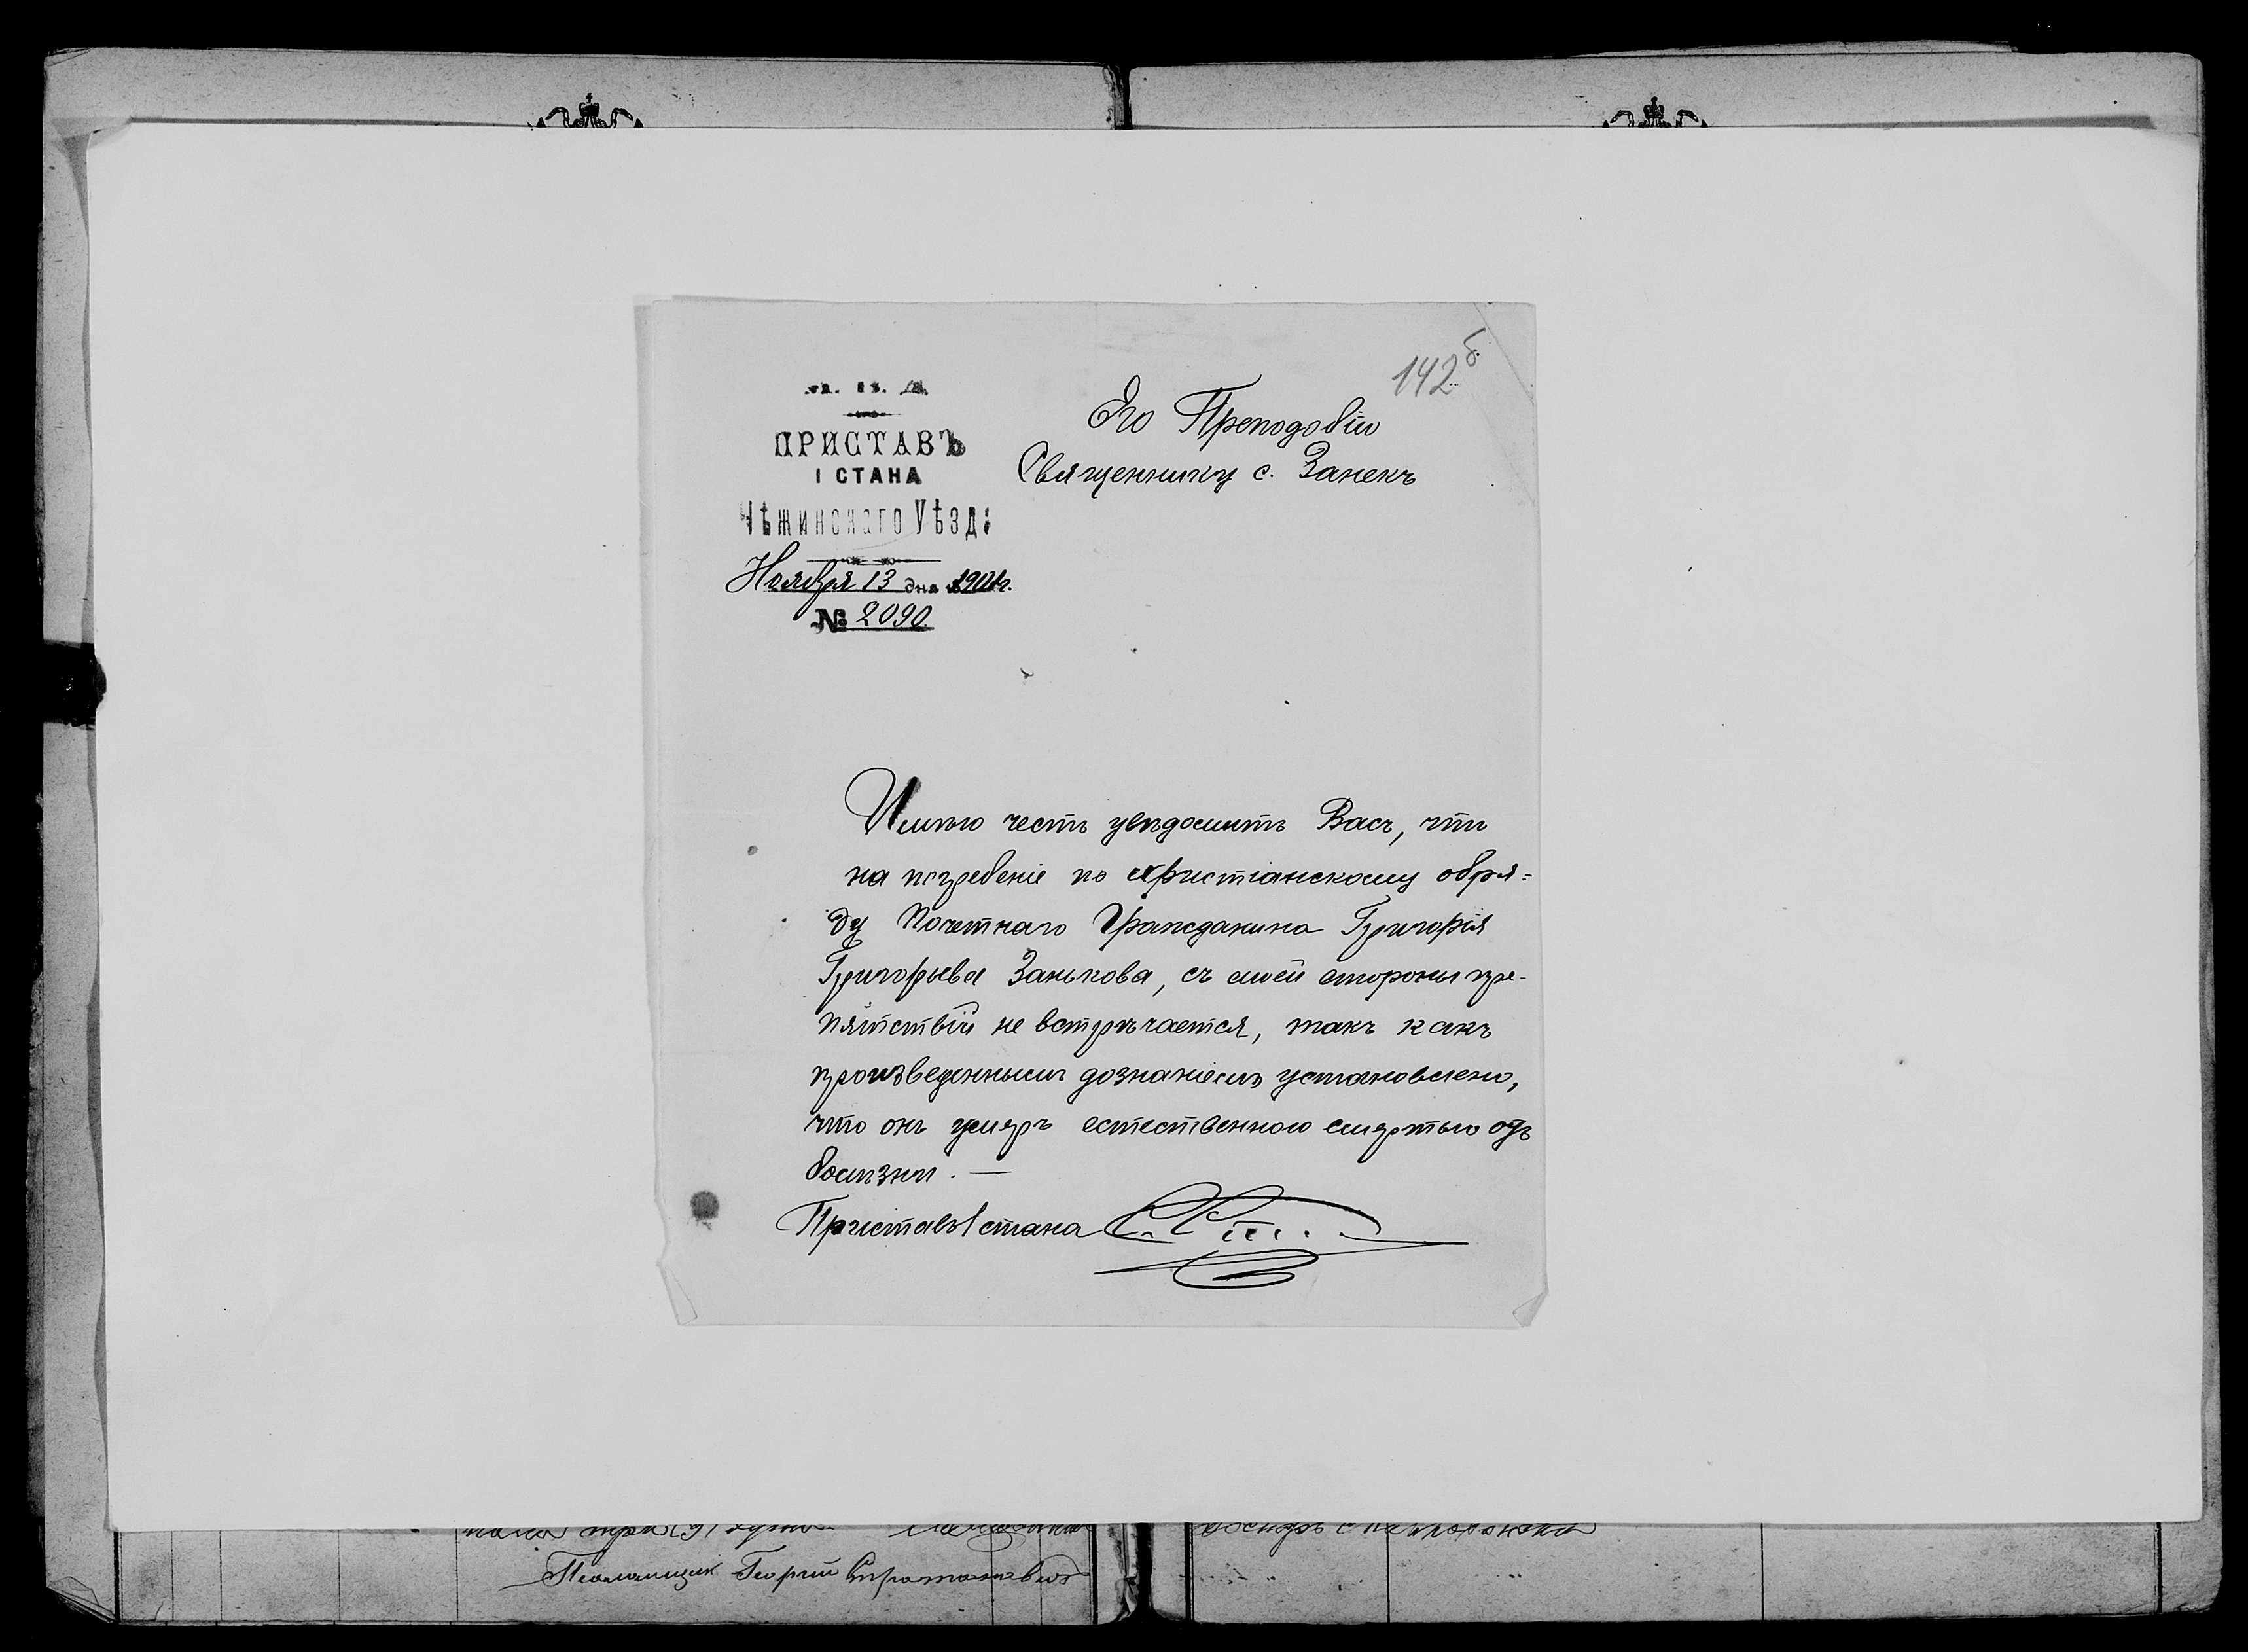 142 б.
М. В. Д.
ПРИСТАВЪ
I СТАНА
Нѣжинскаго Уѣзда
Ноября 13 дня 1901 г.
№ 2090
Его Преподобію
Священнику с. Занекъ
Имѣю честь увѣдомить Васъ, что
на погребеніе по христіанскому обря=
ду Почетнаго Гражданина Григорія
Григорьева Занькова, съ моей стороны пре-
пятствій не встрѣчается, такъ какъ
произведеннымъ дознаніемъ установлено,
что онъ умеръ естественною смертью отъ
болѣзни. —
Приставъ I стана
Псаломщик Георгій